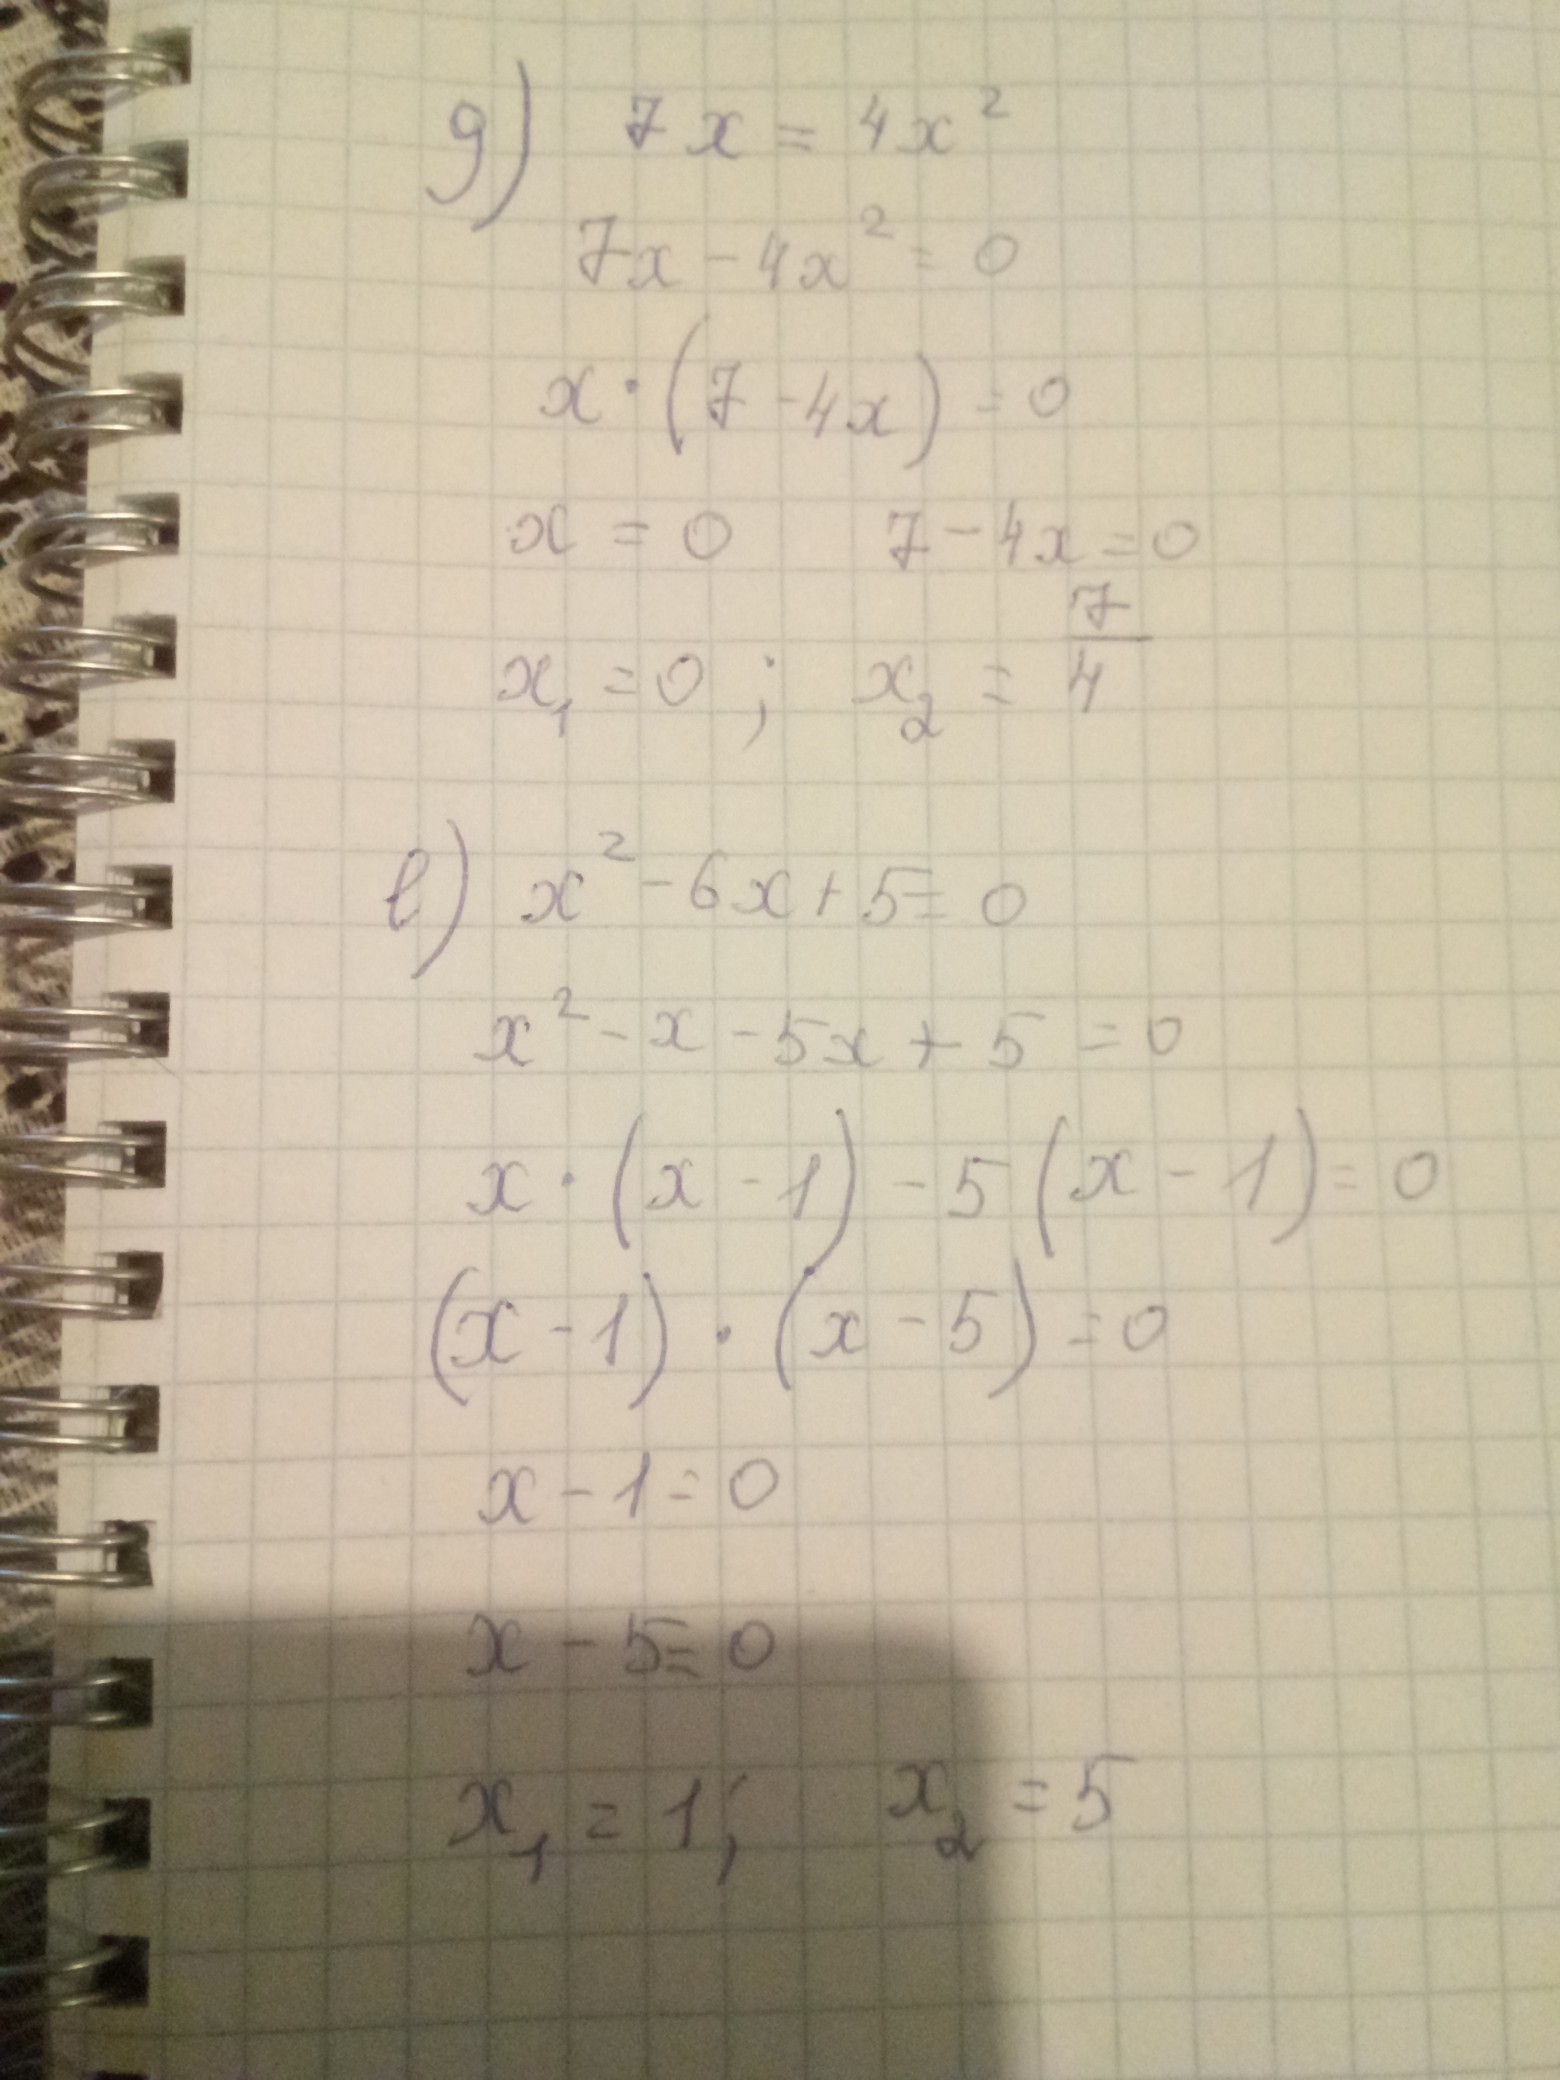 д) 7x = 4x²
7x - 4x² = 0
x · (7 - 4x) = 0
x = 0 7 - 4x = 0
x₁ = 0 ; x₂ = 7/4
е) x² - 6x + 5 = 0
x² - x - 5x + 5 = 0
x · (x - 1) - 5 (x - 1) = 0
(x - 1) · (x - 5) = 0
x - 1 = 0
x - 5 = 0
x₁ = 1; x₂ = 5